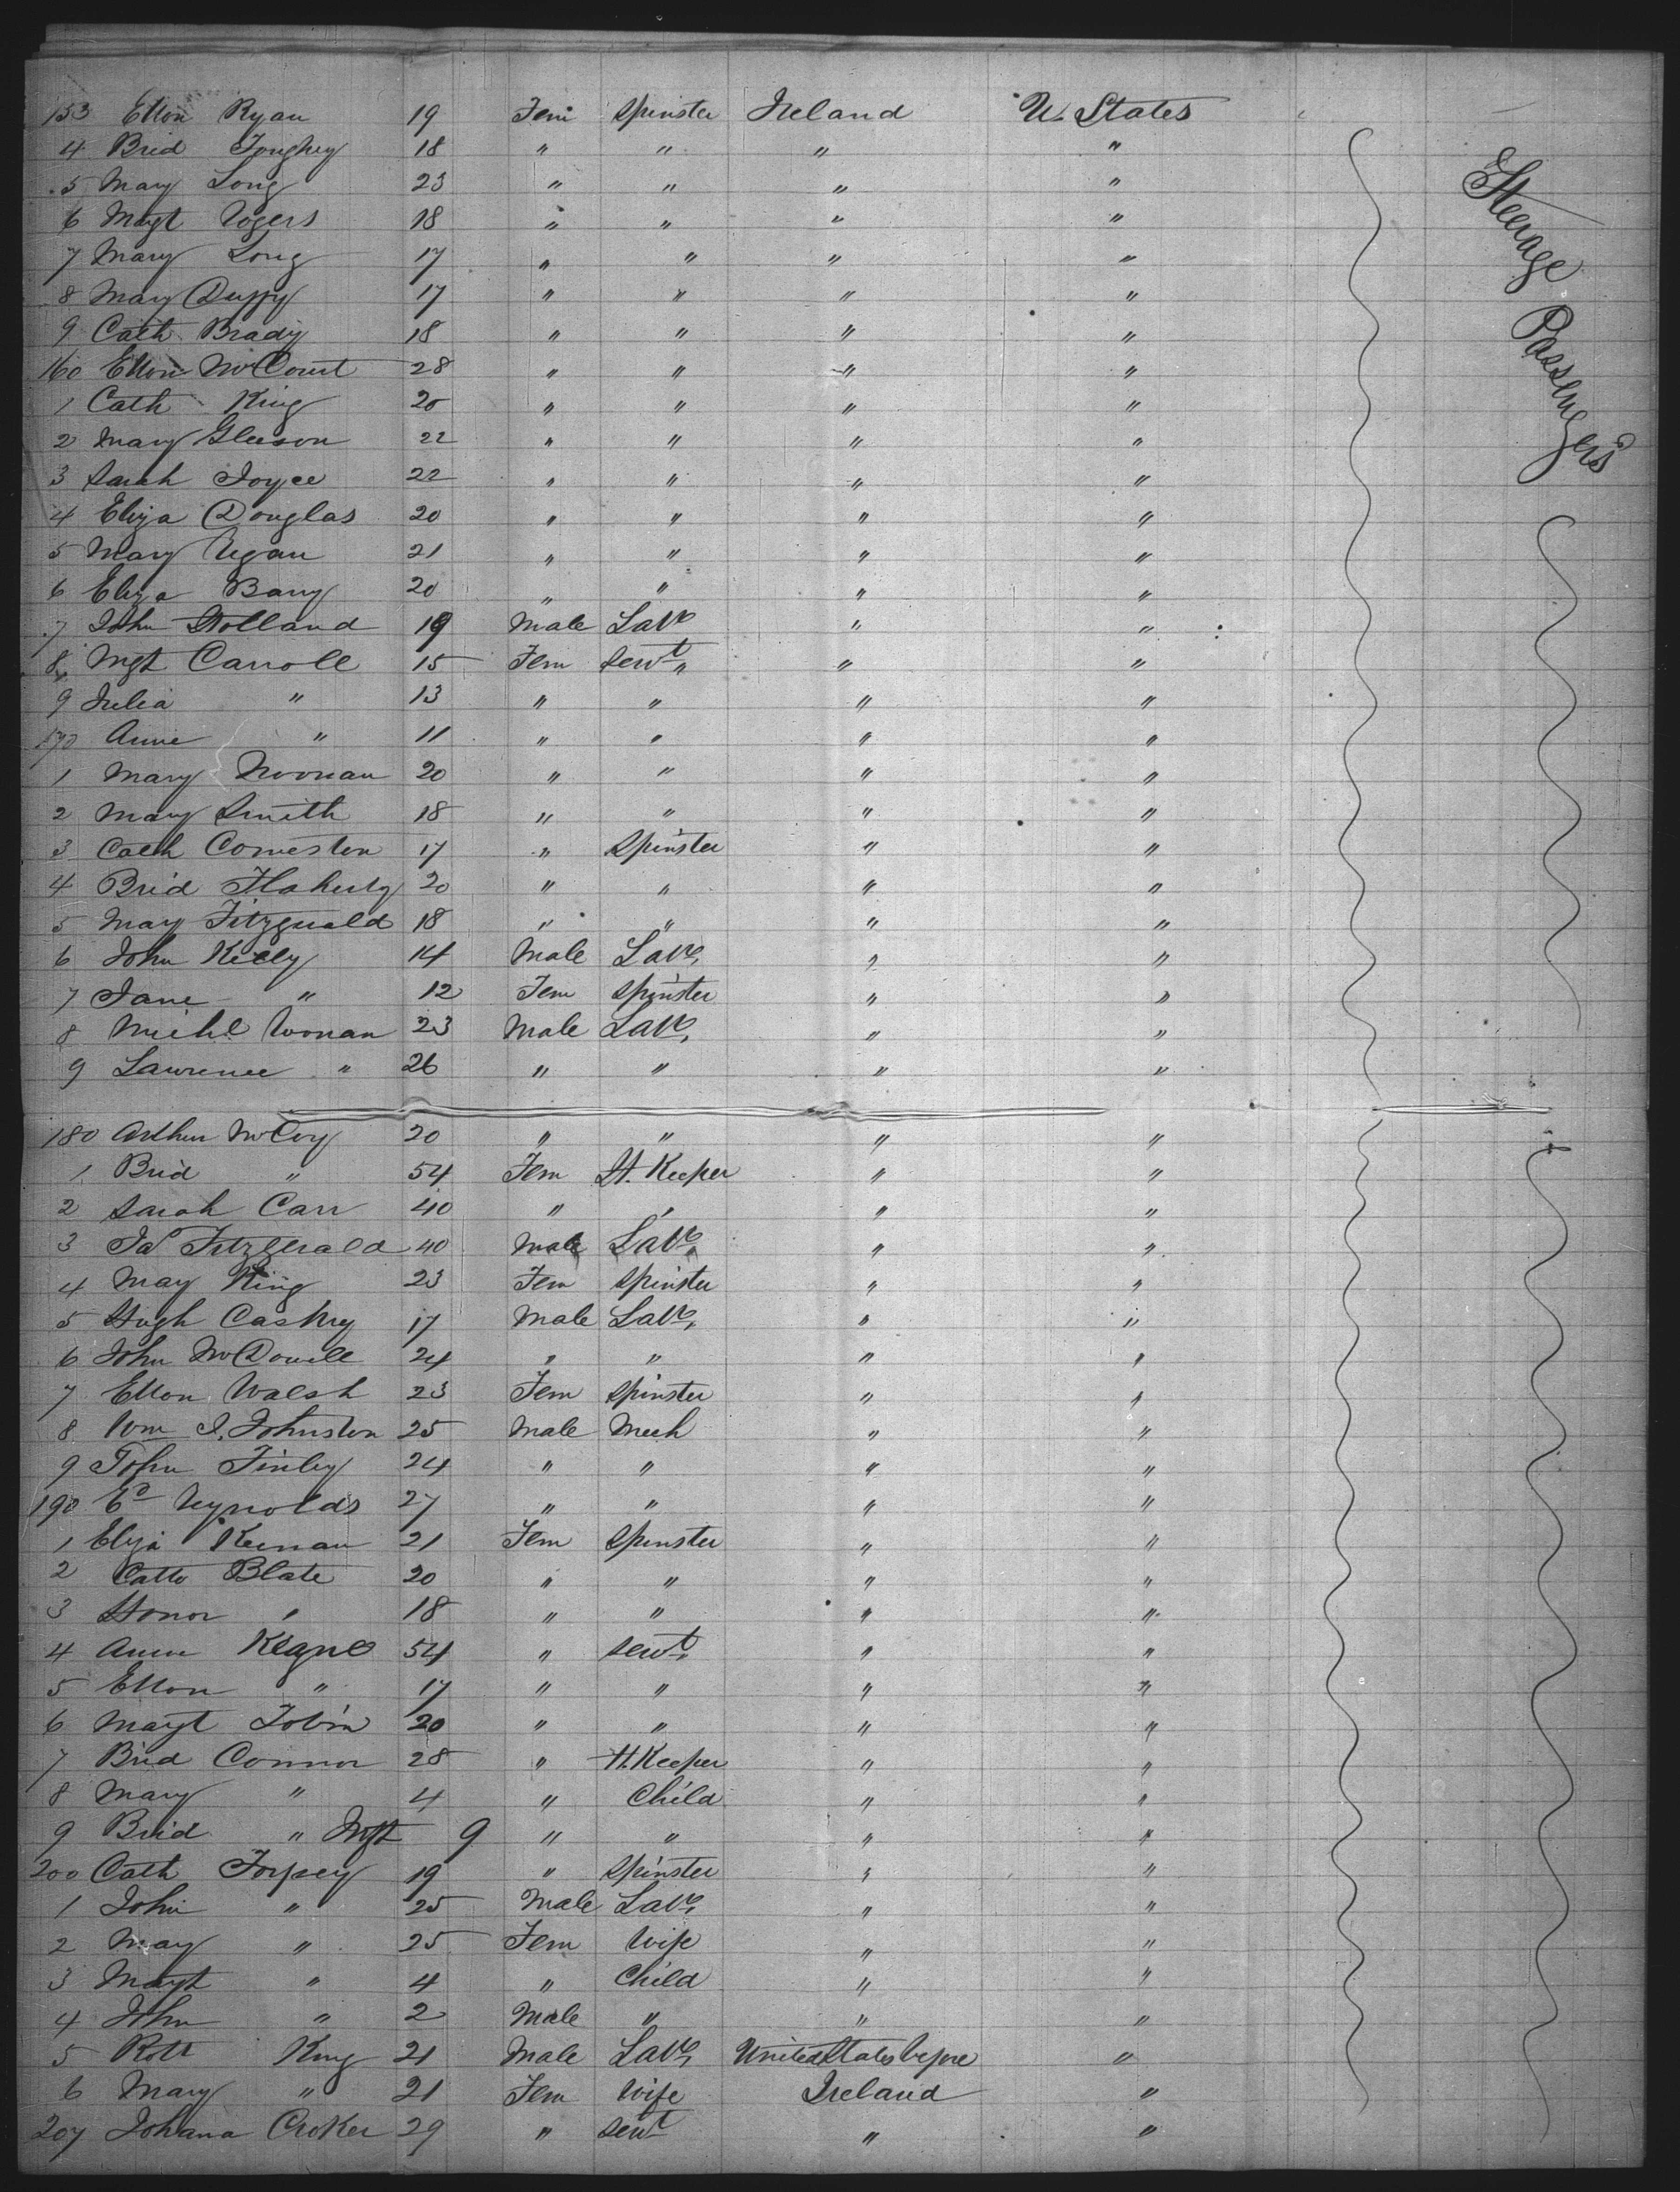 153 Ellen Ryan 19 Fem Spinster Ireland U. States
4 Brid Foughey 18 " " " "
5 Mary Long 23 " " " "
6 Magt Rogers 18 " " " "
7 Mary Long 17 " " " "
8 Mary Duffy 17 " " " "
9 Cath Brady 18 " " " "
160 Ellen McCourt 28 " " " "
1 Cath King 20 " " " "
2 Mary Gleeson 22 " " " "
3 Sarah Joyce 22 " " " "
4 Eliza Douglas 20 " " " "
5 Mary Regan 21 " " " "
6 Eliza Barry 20 " " " "
7 John Holland 19 Male Labr " "
8 Mgt Carroll 15 Fem Servt " "
9 Julia " 13 " " " "
170 Anne " 11 " " " "
1 Mary Noonan 20 " " " "
2 Mary Smith 18 " " " "
3 Cath 17 " Spinster " "
4 Brid Flaherty 20 " " " "
5 Mary Fitzgerald 18 " " " "
6 John Kelly 14 Male Labr " "
7 Jane " 12 Fem Spinster " "
8 Michl Noonan 23 Male Labr " "
9 Lawrence " 26 " " " "
180 Arthur McCoy 20 " " " "
1 Brid " 54 Fem H. Keeper " "
2 Sarah Carr 40 " " " "
3 Jas Fitzgerald 40 Male Labr " "
4 Mary King 23 Fem Spinster " "
5 Hugh Caskey 17 Male Labr " "
6 John McDowell 24 " " " "
7 Ellen Walsh 23 Fem Spinster " "
8 Wm J. Johnston 25 Male Mech " "
9 John Finley 24 " " " "
190 Ed Reynolds 27 " " " "
1 Eliza Keenan 21 Fem Spinster " "
2 Cath Blate 20 " " " "
3 Honor " 18 " " " "
4 Ann Keane 54 " Servt " "
5 Ellen " 17 " " " "
6 Magt Tobin 20 " " " "
7 Brid Connor 28 " H. Keeper " "
8 Mary " 4 " Child " "
9 Brid " Inft 9 " " " "
200 Cath Torpey 19 " Spinster " "
1 John " 25 Male Labr " "
2 Mary " 25 Fem Wife " "
3 Magt " 4 " Child " "
4 John " 2 Male " " "
5 Robt King 21 Male Labr United States before "
6 Mary " 21 Fem Wife Ireland "
207 Johana Croker 29 " Servt " "
Steerage Passengers